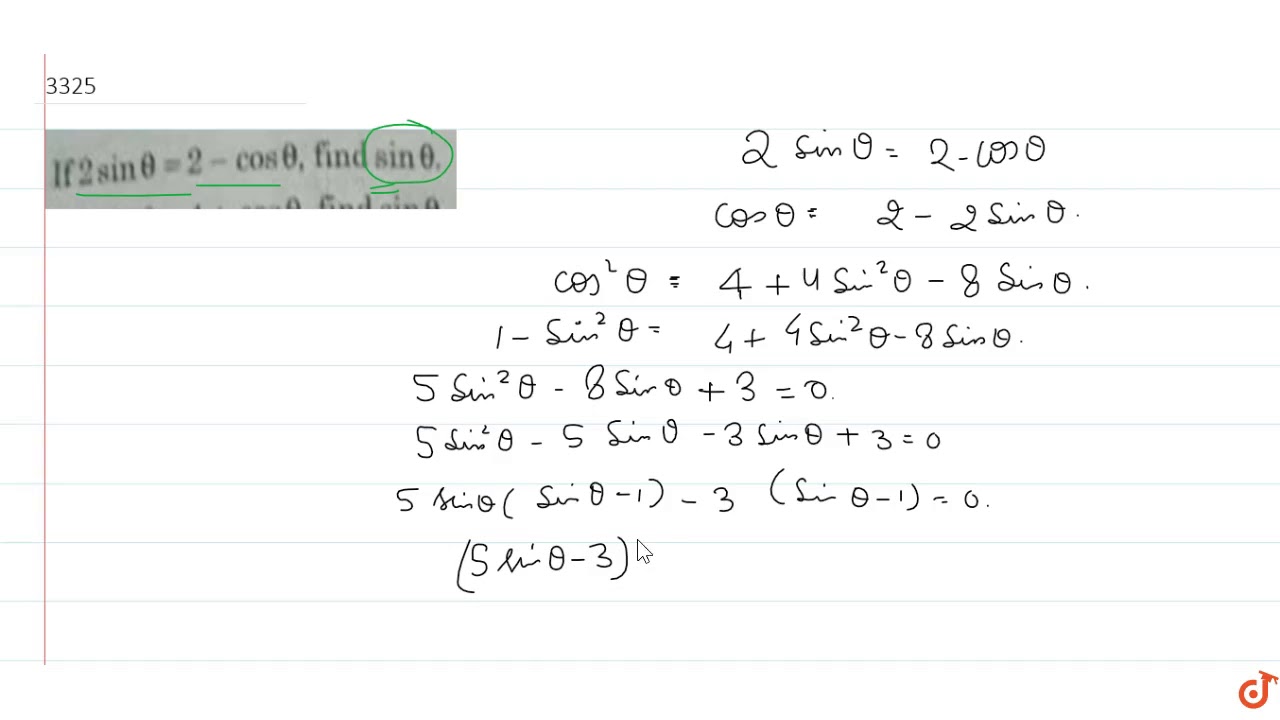 3325
If 2 sin θ = 2 – cos θ, find sin θ.
2 sin θ = 2 - cos θ
cos θ = 2 - 2 sin θ.
cos² θ = 4 + 4 sin² θ - 8 sin θ.
1 - sin² θ = 4 + 4 sin² θ - 8 sin θ.
5 sin² θ - 8 sin θ + 3 = 0.
5 sin² θ - 5 sin θ - 3 sin θ + 3 = 0
5 sin θ ( sin θ - 1) - 3 (sin θ - 1) = 0.
(5 sin θ - 3)